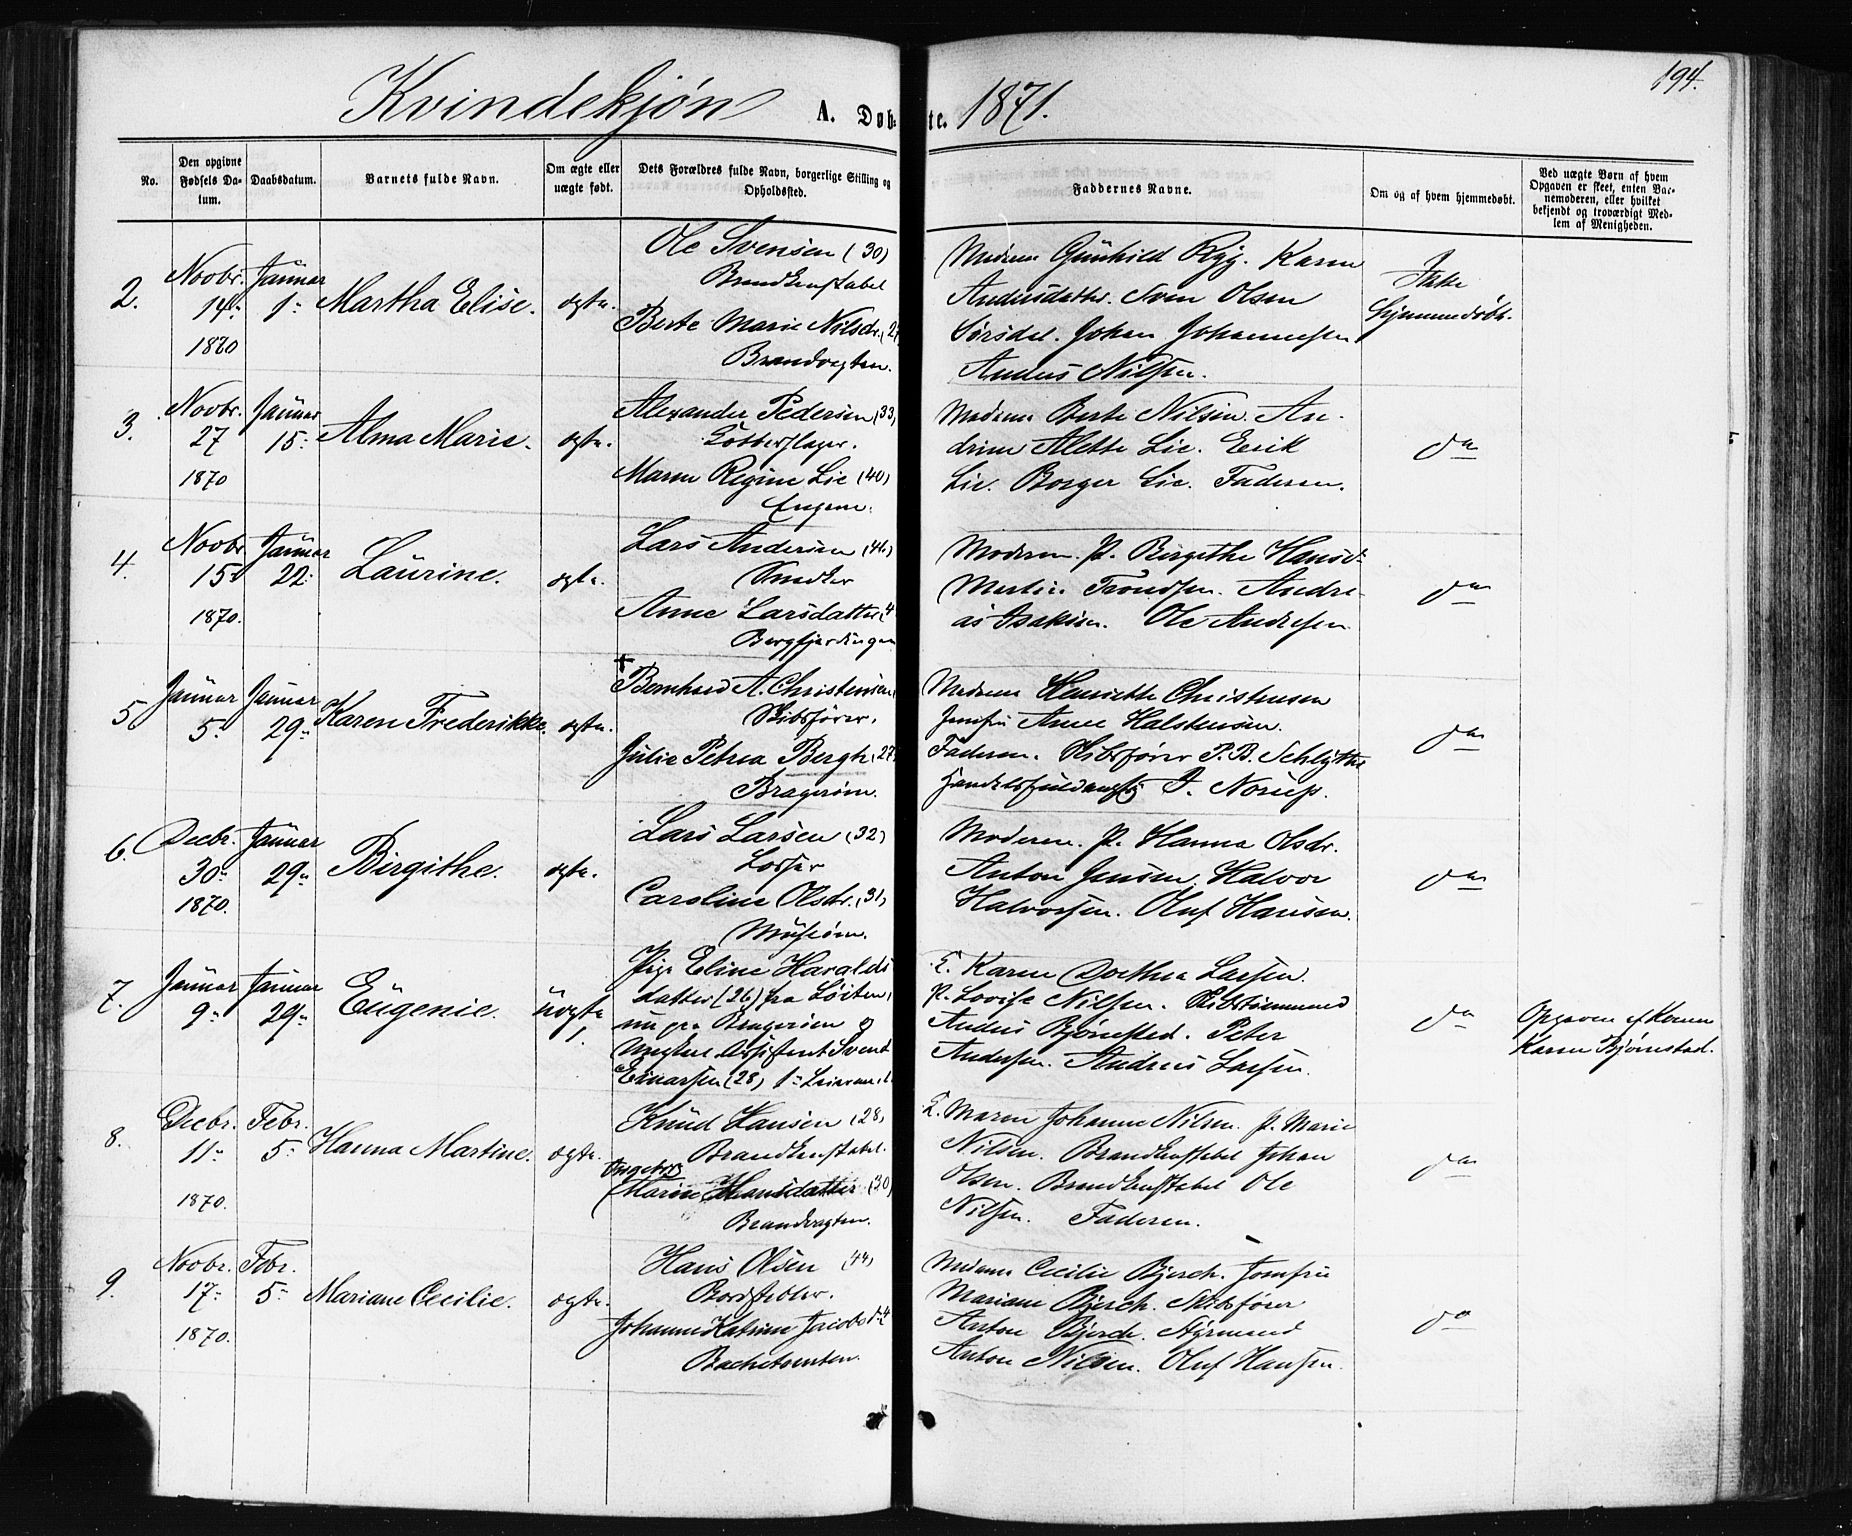 194.
Kvindekjøn A. Døbte. 1871.
No.
Den opgivne Fødsels Datum.
Daabsdatum.
Barnets fulde Navn.
Om ægte eller uægte født.
Dets Forældres fulde Navn, borgerlige Stilling og Opholdssted.
Faddernes Navne.
Om og af hvem hjemmedøbt.
Ved uægte Børn af hvem Opgaven er skeet, enten Barnemoderen, eller hvilket bekjendt og troværdigt Medlem af Menigheden.
2.
Novbr. 14. 1870
Januar 1.
Martha Elise.
ægte.
Ole Svensen (30)
Brandkonstabel
Berte Marie Nilsdr. (27
Brandvagten.
Madam Gunhild Ryg. Karen
Andersdatter. Sven Olsen
Sørsdal. Johan Johannessen
Anders Nilsen.
Ikke
hjemmedøbt.
3.
Novbr. 27 1870
Januar 15.
Alma Marie.
ægte.
Alexander Pedersen (33)
Maren Regine Lie (40)
Engene.
Madam Berte Nilsen. An-
drine Alette Lie. Erik
Lie. Borger Lie. Faderen.
do
4.
Novbr 15 1870.
Januar 22.
Laurine.
ægte.
Lars Andersen (46)
Snedker
Anne Larsdatter (4
Bergfjerdingen
Moderen. P. Birgithe Hansd.
Martin Trondsen. Andre-
as Isaksen. Ole Andresen
do
5
Januar 5.
Januar 29.
Karen Frederikke.
ægte.
† Bernhard A. Christensen
Skibsfører.
Julie Petrea Bergh (27)
Bragerøen.
Madam Henriette Christensen
Jomfru Anne Halstensen.
Faderen. Skibsfører P. B. Schlytter
Handelsfuldmægtig J. Norup.
do
6.
Decbr. 30 1870.
Januar 29
Birgithe.
ægte.
Lars Larsen (32)
Losser
Caroline Olsdr. (31)
Musøen.
Moderen. P. Hanna Olsdr.
Anton Jensen. Halvor
Halvorsen. Oluf Hansen.
do
7.
Januar 9
Januar 29
Eugenie.
uægte
1.
Pige Eline Haralds
datter (26) fra Løiten,
nu paa Bragerøen og
Assistent Svend
Einarsen (28)
E. Karen Dorthea Larsen.
P. Lovise Nilsen. Skibstømmermd
Anders Bjørnstad. Peter
Andersen. Andreas Larsen.
do
Opgaven af Konen
Karen Bjørnstad.
8.
Decbr. 11 1870.
Febr. 5
Hanna Martine.
ægte.
Knud Hansen (28)
Brandkonstabel.
Ingebor
Marie Hansdatter (30)
Brandvagten.
E. Maren Johanne Nilsen. P. Marie
Nilsen. Brandkonstabel Johan
Olsen. Brandkonstabel Ole
Nilsen. Faderen.
do
9.
Novbr. 17 1870.
Febr. 5
Mariane Cecilie.
ægte.
Hans Olsen (44)
Bordstabler.
Johanne Katrine Jacobsd. 4
Bachetomten.
Madam Cecilie Bjerch. Jomfru
Mariane Bjerch. Skibsfører
Anton Bjerch. Styrmand
Anton Nilsen. Oluf Hansen.
do